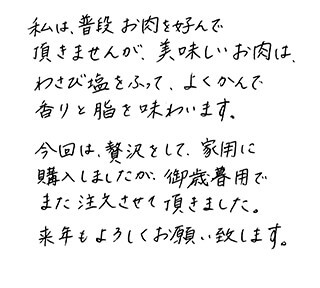 私は、普段お肉を好んで
頂きませんが、美味しいお肉は、
わさび塩をふって、よくかんで
香りと脂を味わいます。
今回は、贅沢をして、家用に
購入しましたが、御歳暮用で
また注文させて頂きました。
来年もよろしくお願い致します。